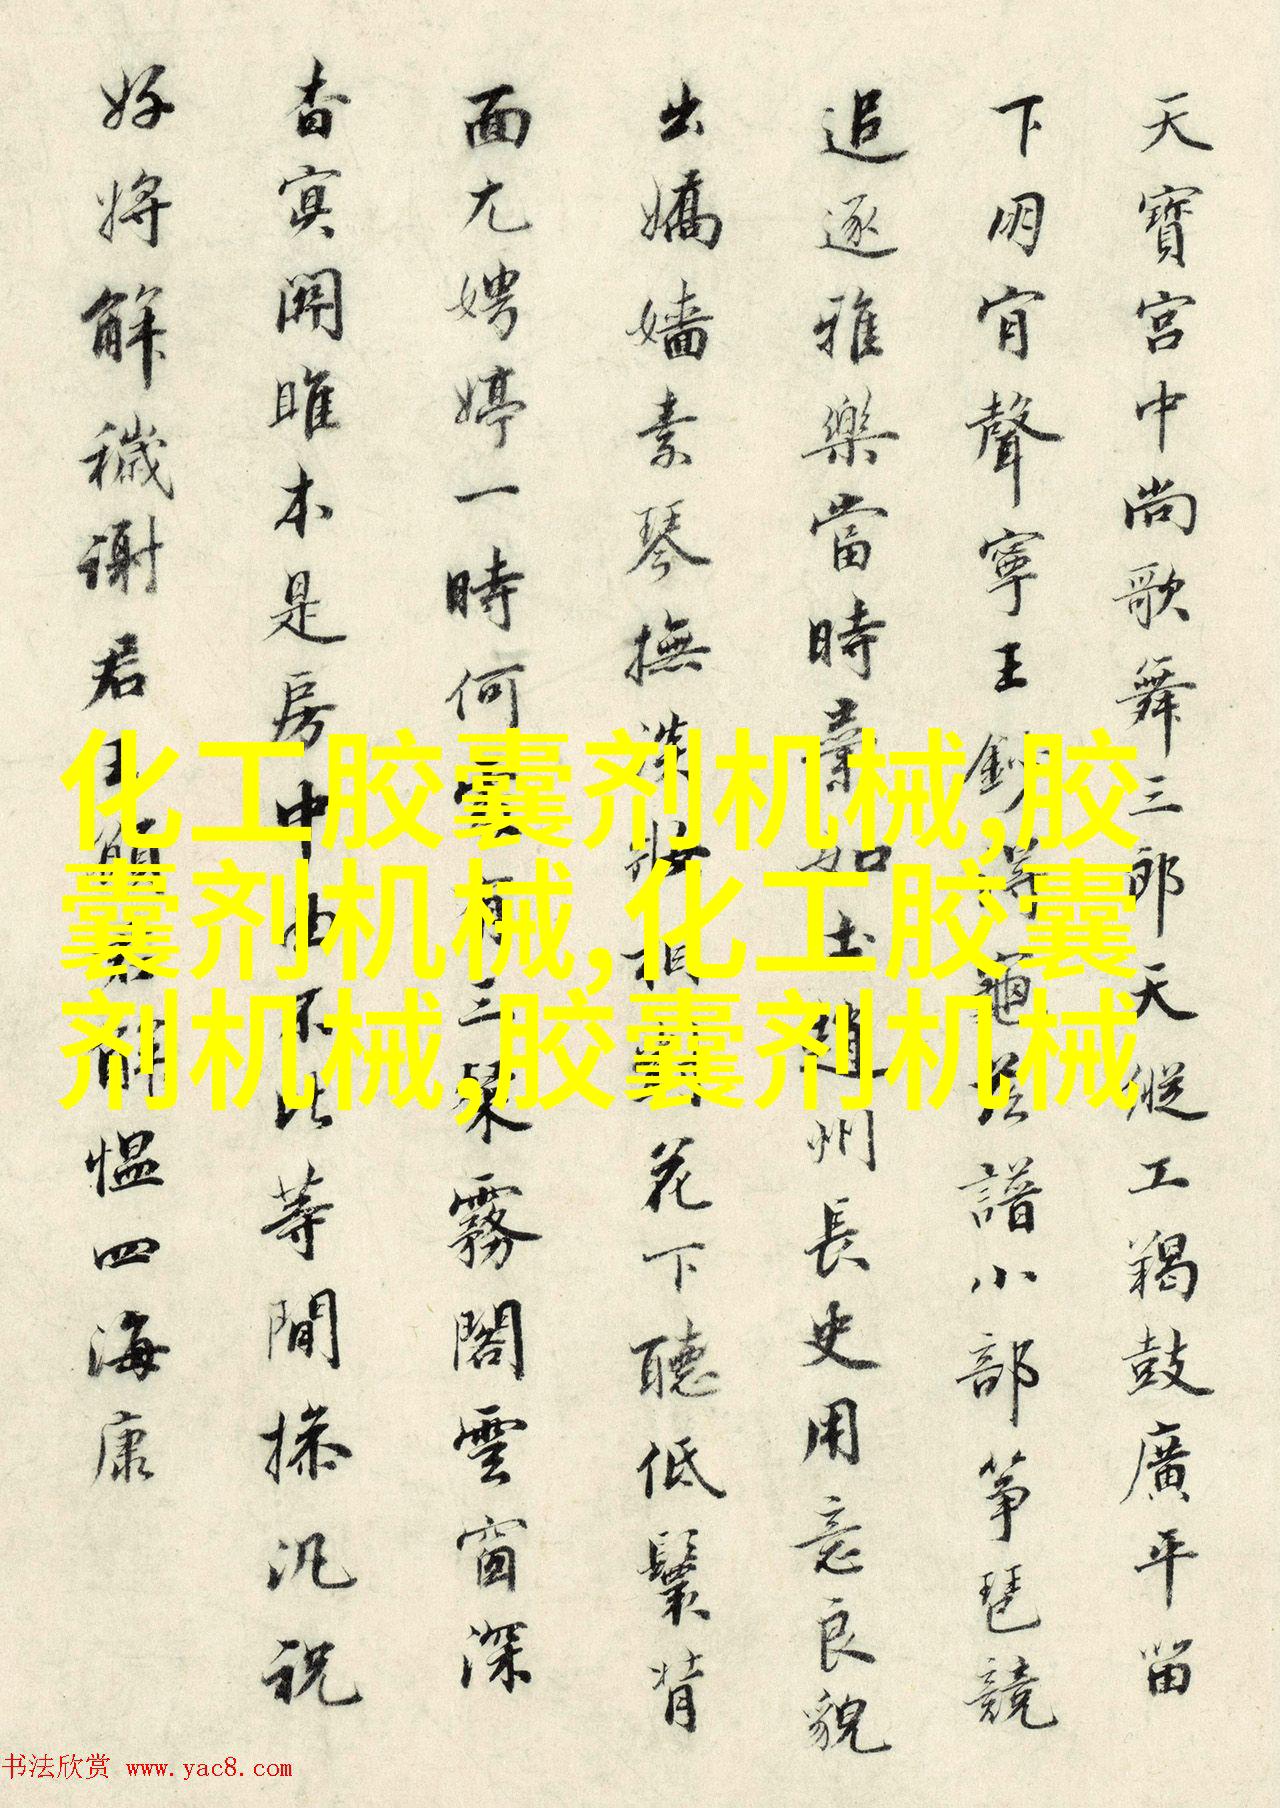 天寶宮中尚歌舞三郎天縱工羯鼓廣平笛
下明宵聲寧王龜茲譜小部箏琶競
追逐雅樂當時棄如土趙州長史用意良貌
出嬌嬙素琴撫淡妝相對花下聽低鬟背
面尤娉婷一時何有三琹霧閣雲窗深
杳寞關雎本是房中曲不比等閒操汎祝
好將解穢謝君王解愠四海康
化工胶囊剂机械,胶
囊剂机械,化工胶囊
剂机械,胶囊剂机械
书法欣赏 www.yac8.com